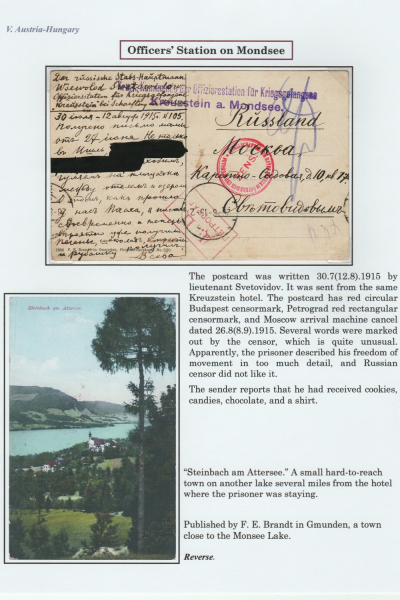 V. Austria-Hungary
Officers' Station on Mondsee
Der russische Stabs-Hauptmann
Wsewolod
Offiziersstation für Kriegsgefangene
Kreuzstein bei Scharfling
30 июля - 12 августа 1915 г. N 105.
Получено письмо мамы
от 27 июня
Offiziersstation für Kriegsgefangene
Kreuzstein a. Mondsee.
Russland
Москва.
Садовая д. 10, кв 17.
Свѣтовидовымъ
The postcard was written 30.7(12.8).1915 by
lieutenant Svetovidov. It was sent from the same
Kreuzstein hotel. The postcard has red circular
Budapest censormark, Petrograd red rectangular
censormark, and Moscow arrival machine cancel
dated 26.8(8.9).1915. Several words were marked
out by the censor, which is quite unusual.
Apparently, the prisoner described his freedom of
movement in too much detail, and Russian
censor did not like it.
The sender reports that he had received cookies,
candies, chocolate, and a shirt.
Steinbach am Attersee.
"Steinbach am Attersee." A small hard-to-reach
town on another lake several miles from the hotel
where the prisoner was staying.
Published by F. E. Brandt in Gmunden, a town
close to the Monsee Lake.
Reverse.